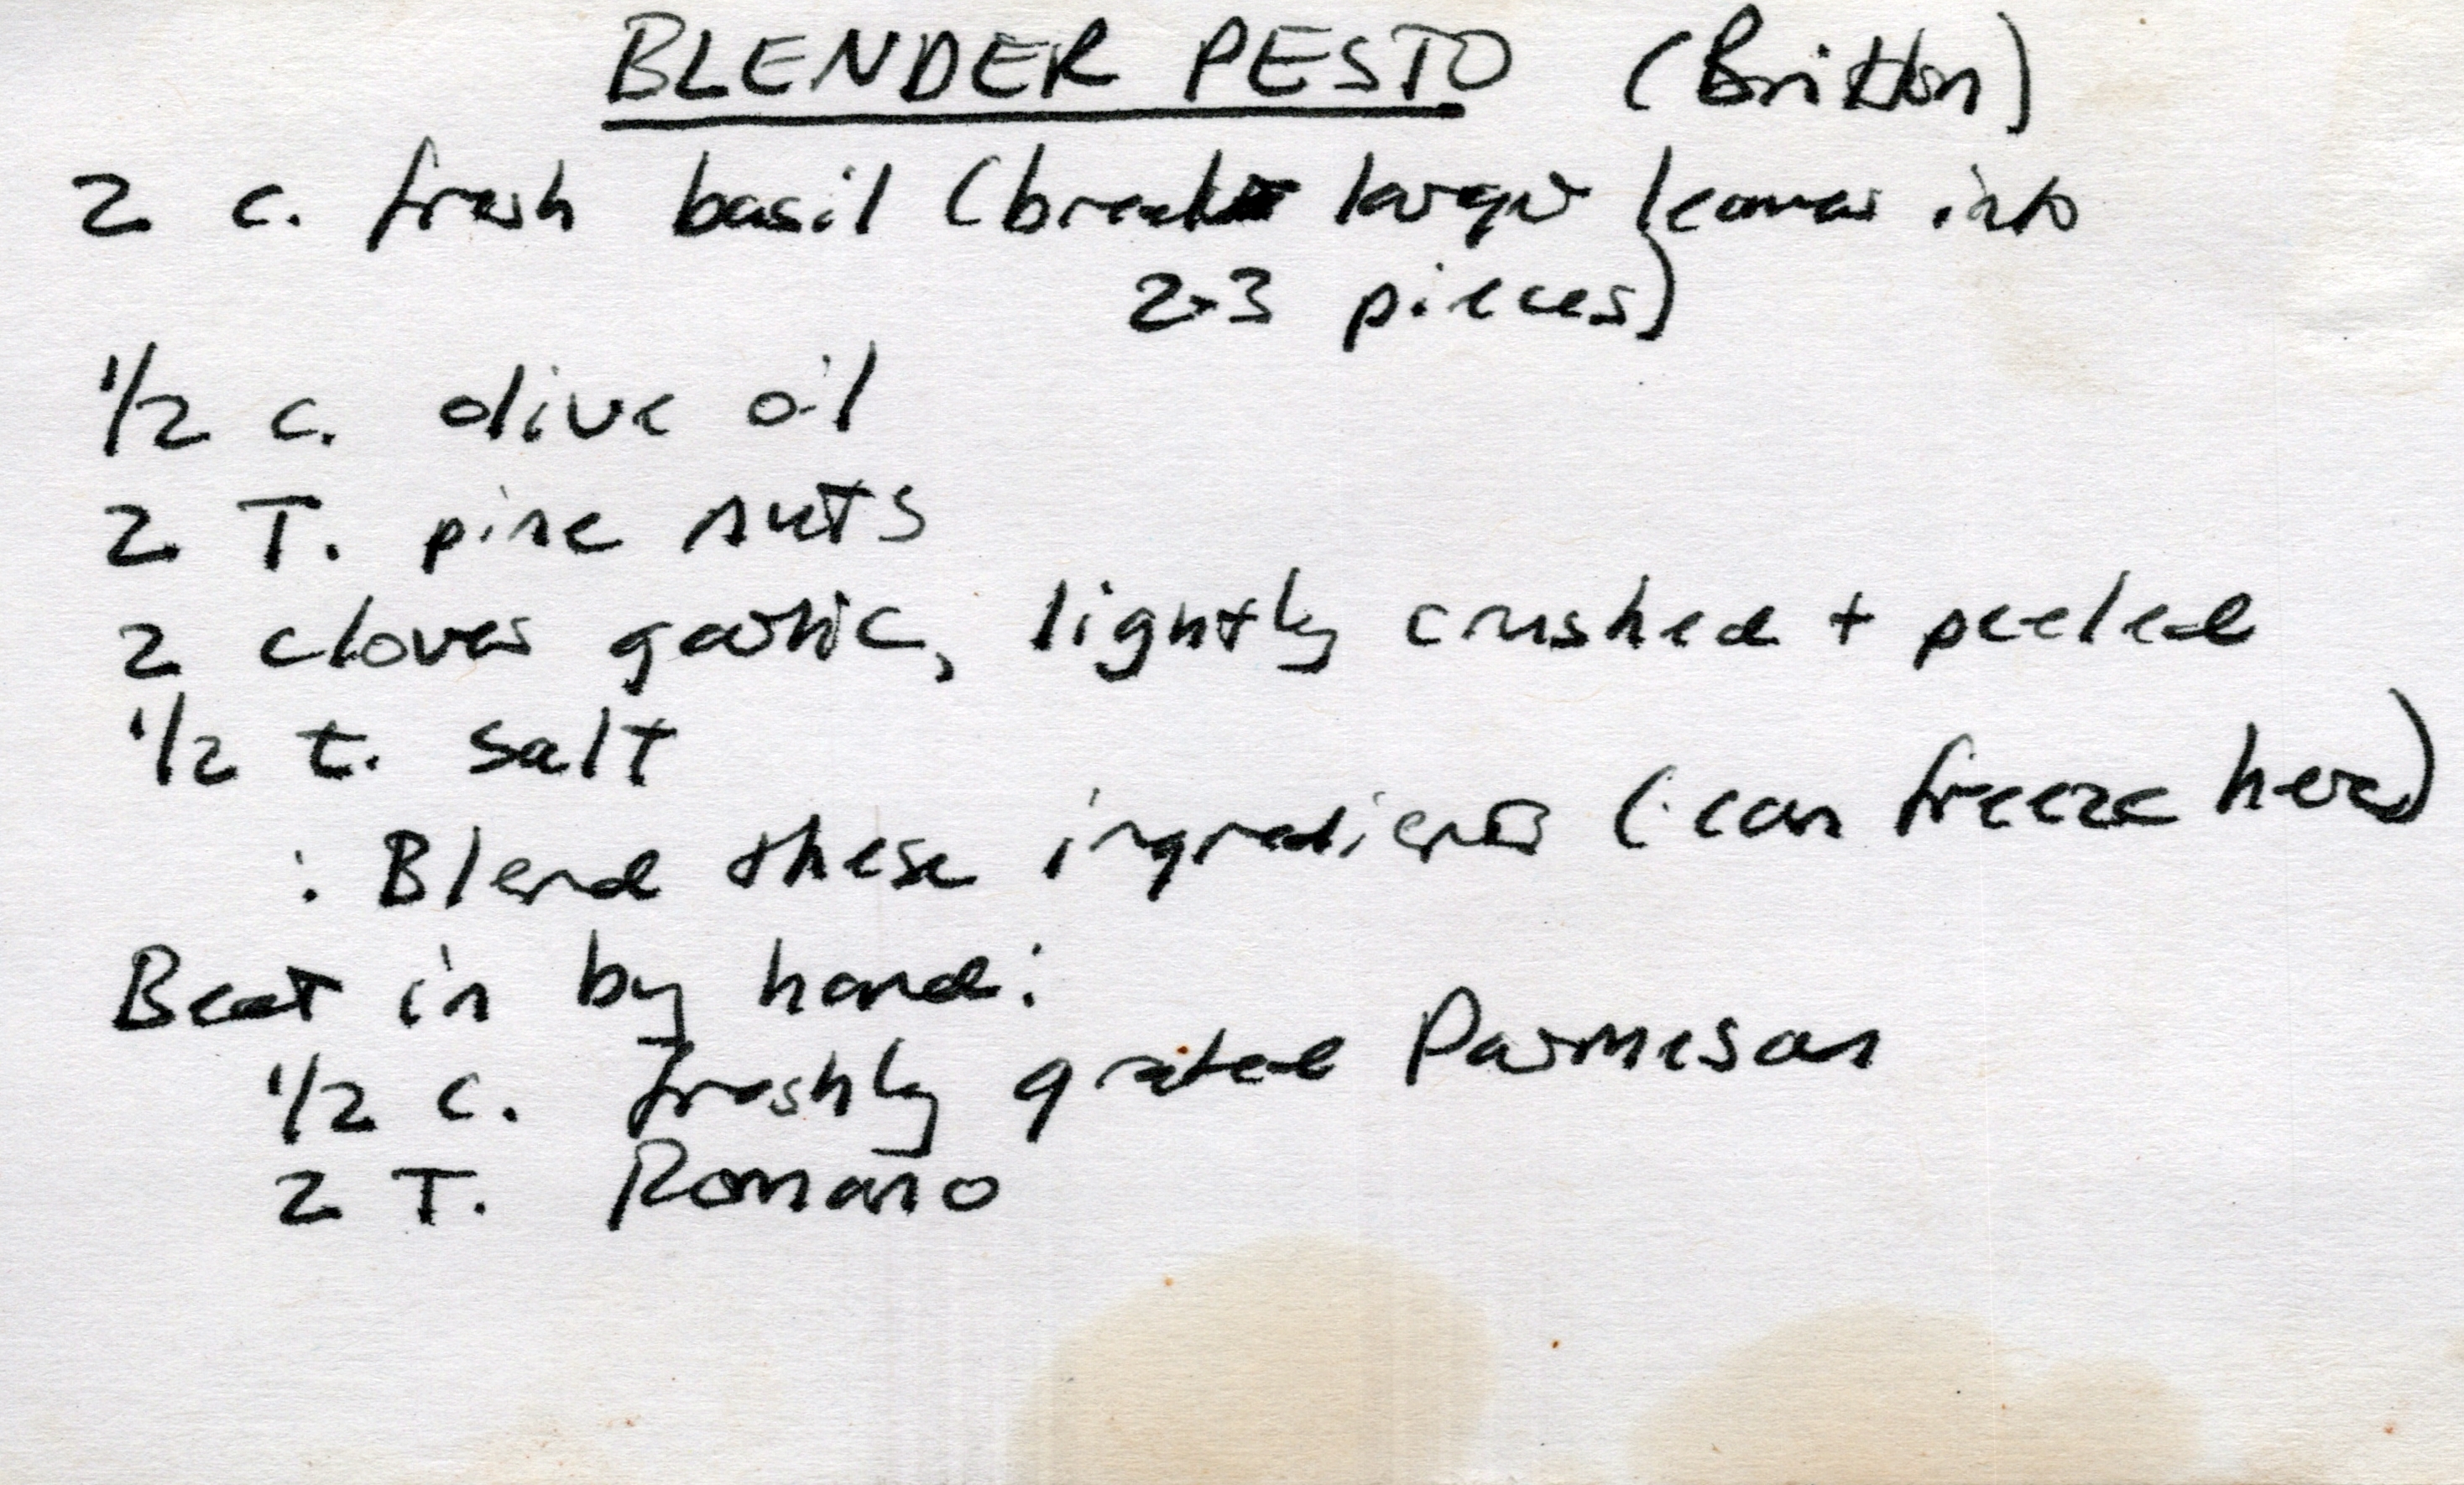 BLENDER PESTO (Britton)
2 c. fresh basil (break larger leaves into
2-3 pieces)
1/2 c. olive oil
2 T. pine nuts
2 cloves garlic, lightly crushed + peeled
1/2 t. salt
: Blend these ingredients (can freeze here)
Beat in by hand:
1/2 c. freshly grated Parmesan
2 T. Romano